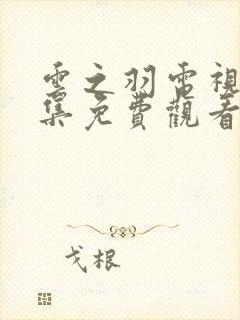 雲之羽電視
集免費觀看
戈根